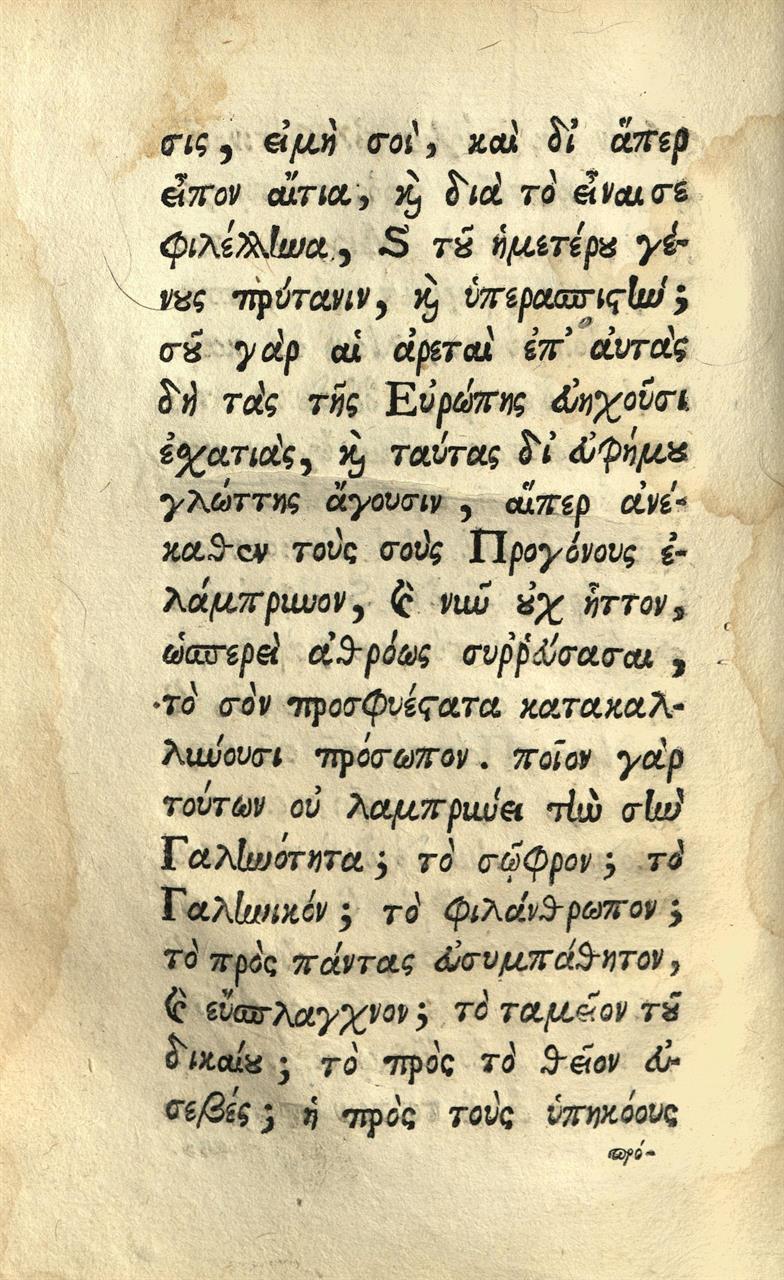 σις, εἰμὴ σοὶ, καὶ δι᾽ ἅπερ
εἶπον αἴτια, ϗ διὰ τὸ εἶναι σε
φιλέλληνα, ϗ τȣ͂ ἡμετέρȣ γέ-
νους πρύτανιν, ϗ ὑπερασπιστήν;
σȣ͂ γὰρ αἱ ἀρεταὶ ἐπ᾽ αὐτὰς
δὴ τὰς τῆς Εὐρώπης διηχοῦσι
ἐχατιὰς, ϗ ταύτας δι᾽ εὐφήμȣ
γλώττης ἄγουσιν, αἵπερ ἀνέ-
καθεν τοὺς σοὺς Προγόνους ἐ-
λάμπρυνον, ϗ νῦν ȣ̓χ ἧττον,
ὡσπερεὶ ἀθρόως συῤῥεύσασαι,
τὸ σὸν προσφυέστατα κατακαλ-
λύνουσι πρόσωπον. ποῖον γὰρ
τούτων οὐ λαμπρύνει τὴν σὴν
Γαληνότητα; τὸ σῷφρον; τὸ
Γαληνικόν; τὸ φιλάνθρωπον;
τὸ πρὸς πάντας εὐσυμπάθητον,
ϗ εὔσπλαγχνον; τὸ ταμεῖον τȣ͂
δικαίȣ; τὸ πρὸς τὸ θεῖον εὐ-
σεβές; ἡ πρὸς τοὺς ὑπηκόους
πρό-